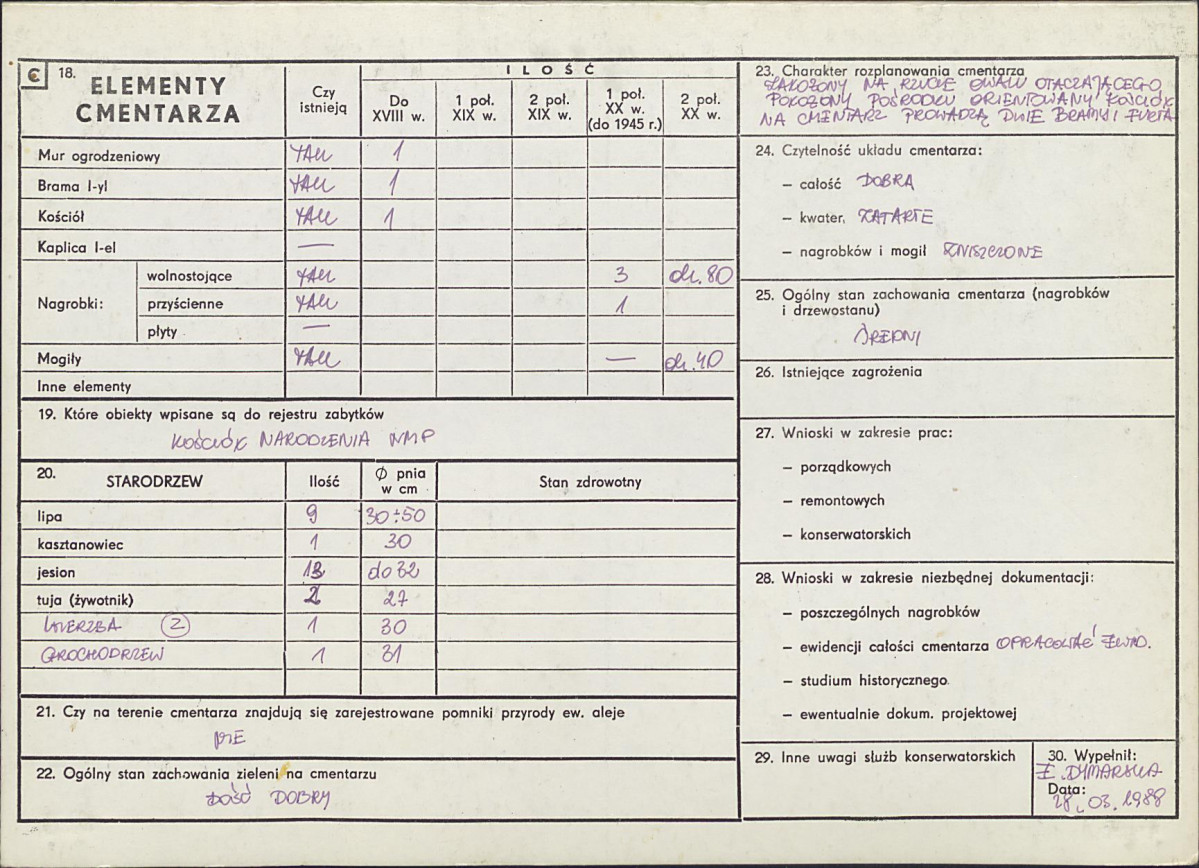 C 18. ELEMENTY
CMENTARZA
Czy
istnieją
ILOŚĆ
Do
XVIII w.
1 poł.
XIX w.
2 poł.
XIX w.
1 poł.
XX w.
(do 1945 r.)
2 poł.
XX w.
Mur ogrodzeniowy TAK 1
Brama I-yl TAK 1
Kościół TAK 1
Kaplica I-el —
Nagrobki:
wolnostojące TAK 3 ok. 80
przyścienne TAK 1
płyty —
Mogiły TAK — ok. 40
Inne elementy
19. Które obiekty wpisane są do rejestru zabytków
KOŚCIÓŁ NARODZENIA NMP
20. STARODRZEW Ilość Ø pnia
w cm
Stan zdrowotny
lipa 9 30÷50
kasztanowiec 1 30
jesion 13 do 32
tuja (żywotnik) 2 27
WIERZBA (2) 1 30
GROCHODRZEW 1 31
21. Czy na terenie cmentarza znajdują się zarejestrowane pomniki przyrody ew. aleje
NIE
22. Ogólny stan zachowania zieleni na cmentarzu
DOŚĆ DOBRY
23. Charakter rozplanowania cmentarza
ZAŁOŻONY NA RZUCIE OWALU OTACZAJĄCEGO
POŁOŻONY POŚRODKU ORIENTOWANY KOŚCIÓŁ
NA CMENTARZ PROWADZĄ DWIE BRAMY I FURTA
24. Czytelność układu cmentarza:
– całość DOBRA
– kwater. ZATARTE
– nagrobków i mogił ZNISZCZONE
25. Ogólny stan zachowania cmentarza (nagrobków
i drzewostanu)
ŚREDNI
26. Istniejące zagrożenia
27. Wnioski w zakresie prac:
– porządkowych
– remontowych
– konserwatorskich
28. Wnioski w zakresie niezbędnej dokumentacji:
– poszczególnych nagrobków
– ewidencji całości cmentarza OPRACOWAĆ EWID.
– studium historycznego.
– ewentualnie dokum. projektowej
29. Inne uwagi służb konserwatorskich
30. Wypełnił:
E. DYMARSKA
Data:
28.03.1988